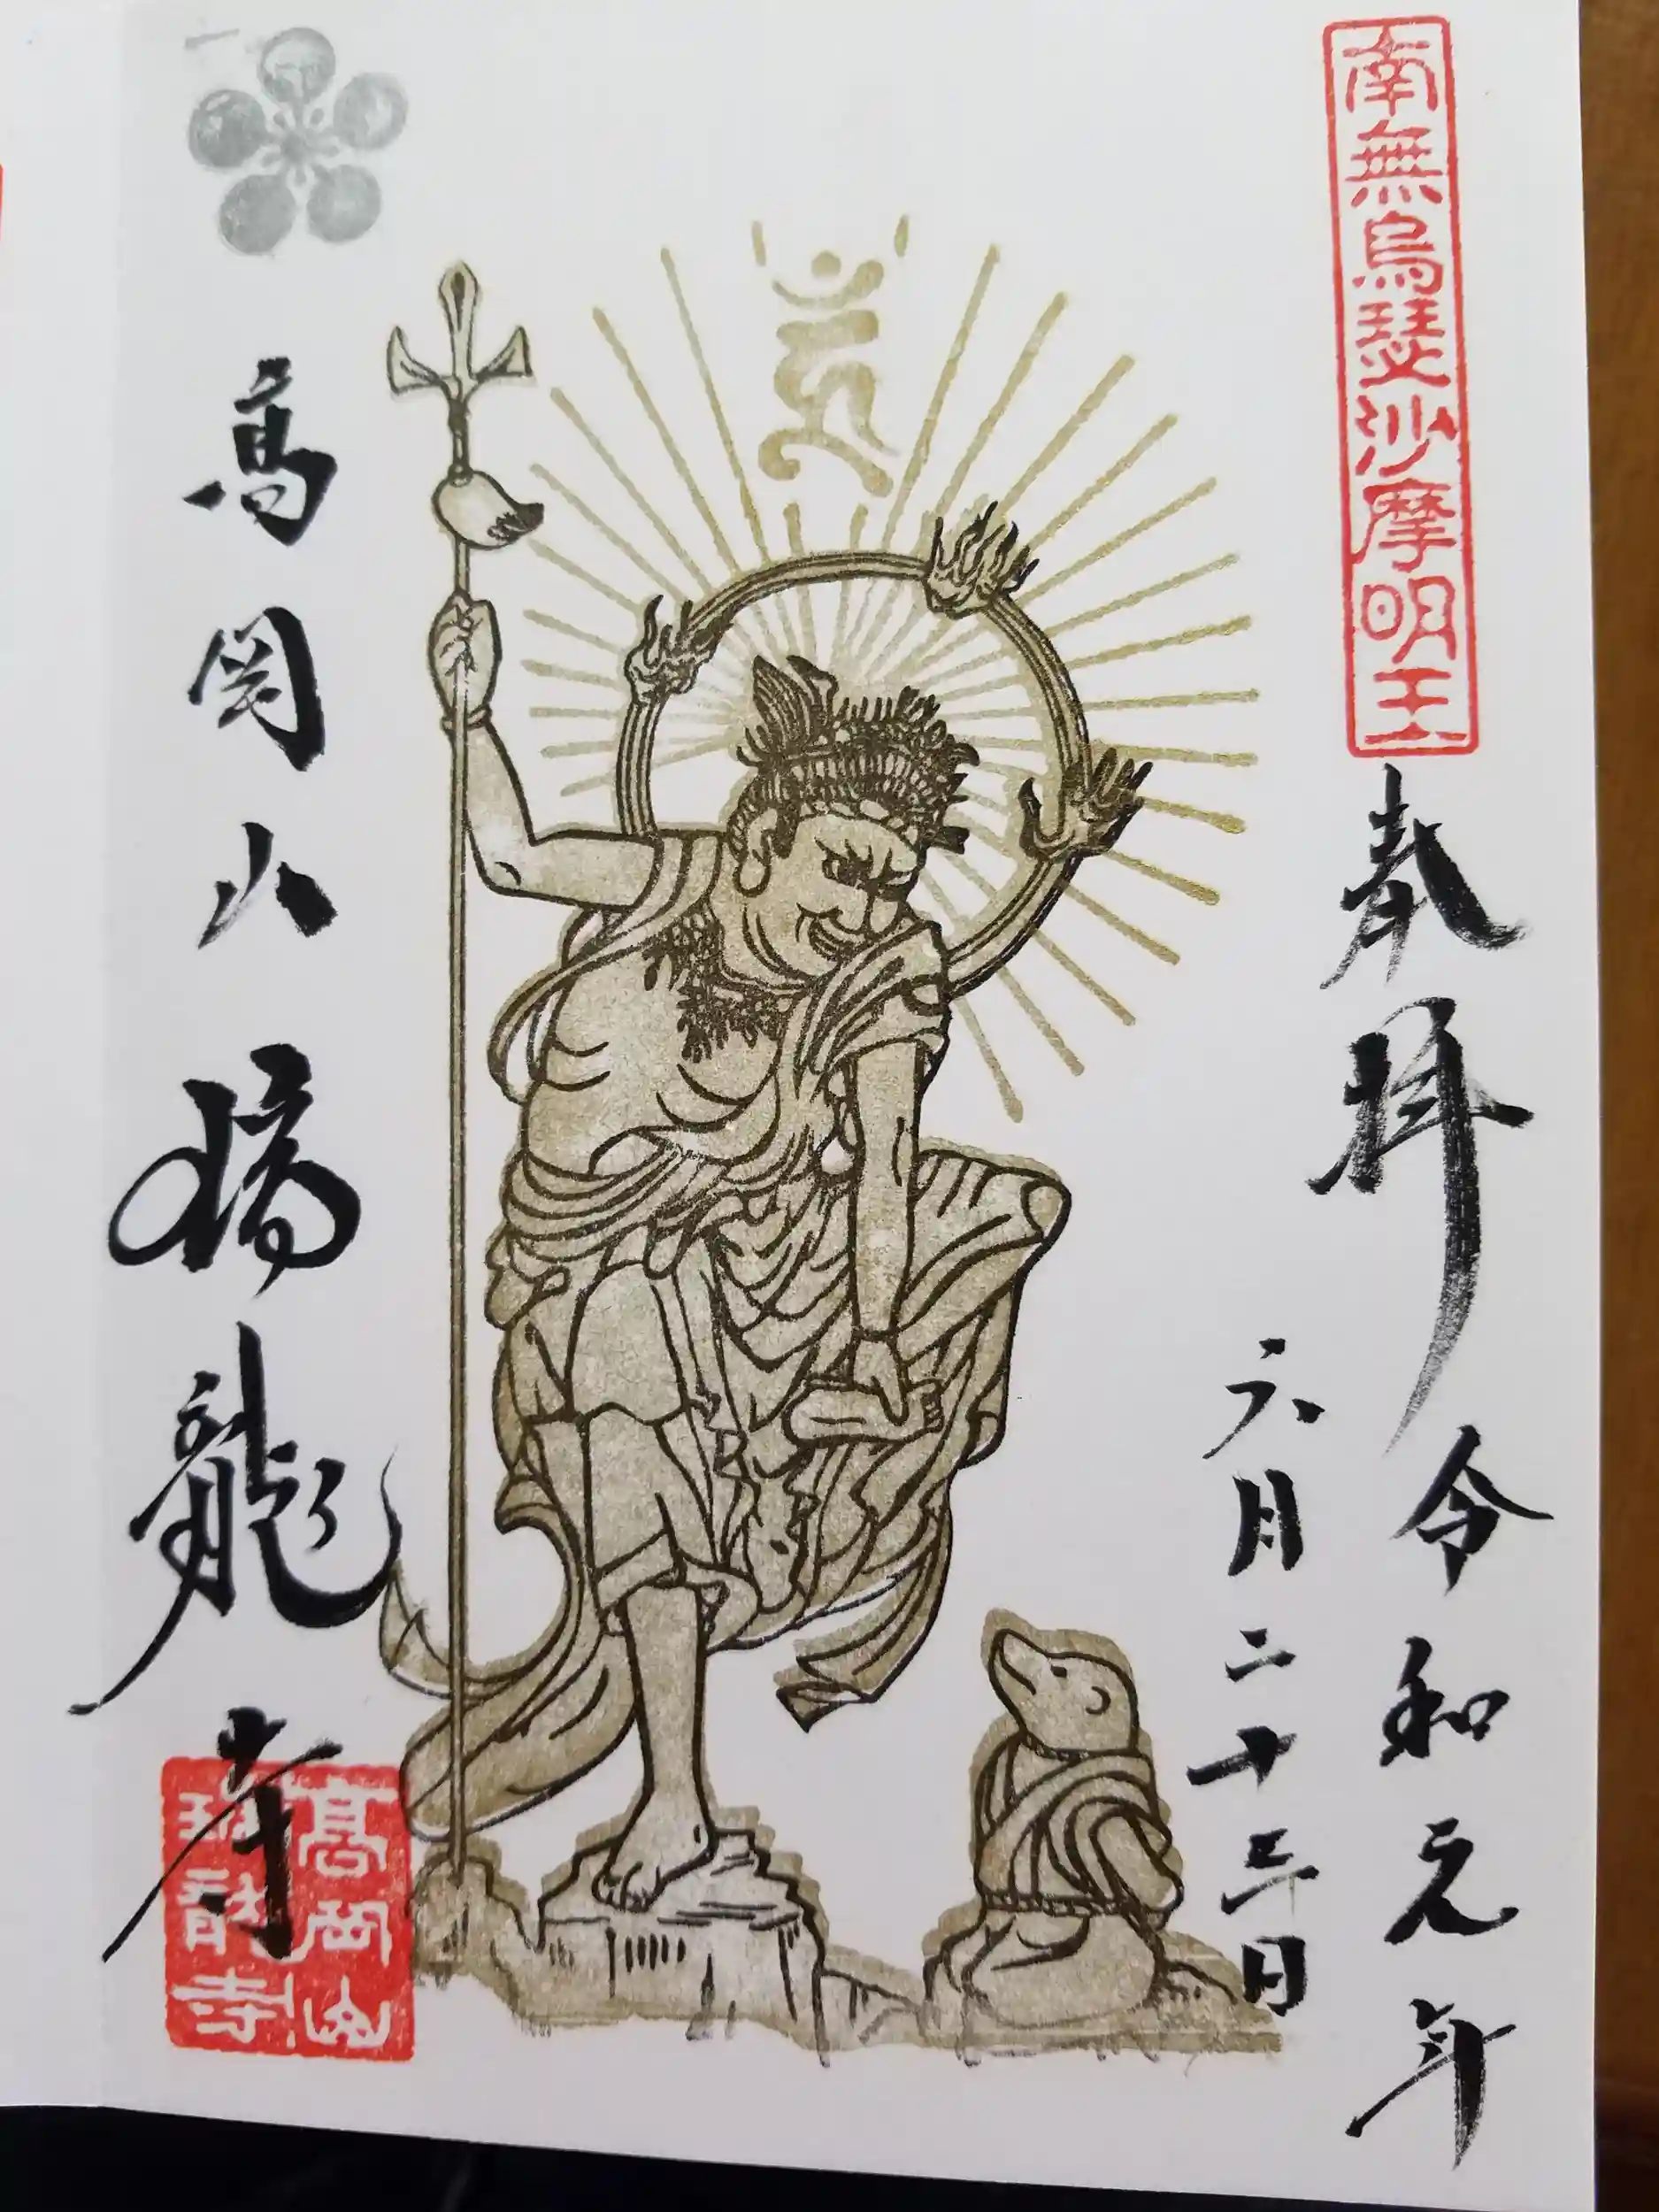 南無烏瑟沙摩明王
奉拝
令和元年
六月二十三日
高岡山瑞龍寺
高岡山
瑞龍寺